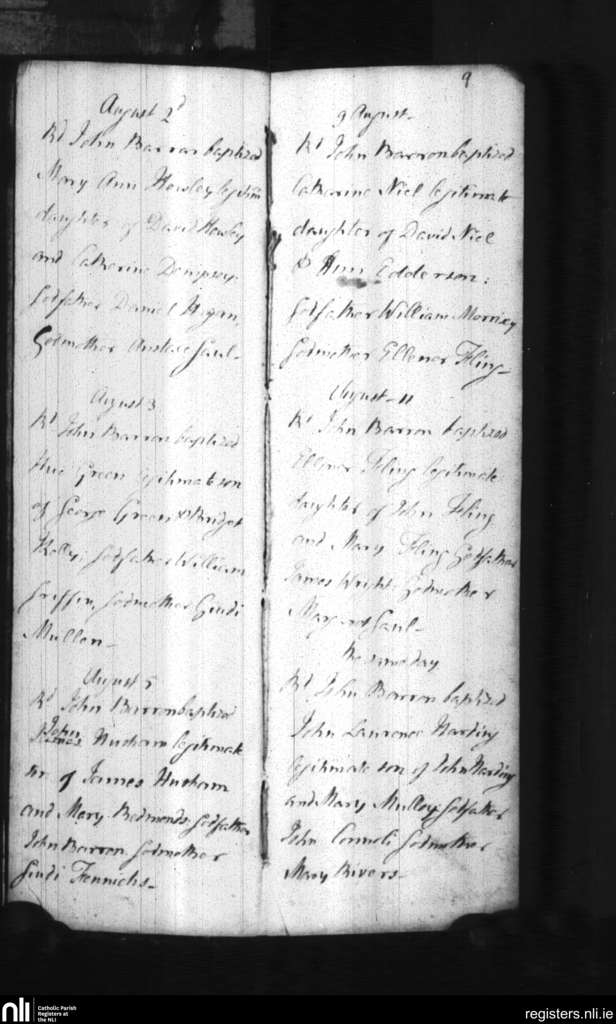 August 2d
Rd John Barron baptized
Mary Ann Howley legitim
daughter of David Howley
and Catherine Dempsey.
Godfather Daniel Hogan,
Godmother Gaul-
August 3
Rd John Barron baptized
Green legitimate son
of George Green & Bridget
Kelly; Godfather William
Griffin, Godmother Giudi
Mullen-
August 5
Rd John Barron baptized
John Husham legitimate
son of James Husham
and Mary Redmonds. Godfather
John Barron Godmother
Giudi Fennichs-
9
9 August-
Rd John Barron baptized
Catherine Niel legitimate
daughter of David Niel
& Ann Edderson:
Godfather William Morrisy
Godmother Ellenor Fling-
August-11
Rd John Barron baptized
Ellenor Fling legitimate
daughter of John Fling
and Mary Fling Godfather
James Wright. Godmother
Margaret Gaul-
the same day
Rd John Barron baptized
John Laurence Harding
legitimate son of John Harding
and Mary Mulloy Godfather
John Connoli Godmother
Mary Rivers-
nli
Catholic Parish
Registers at
the NLI
registers.nli.ie